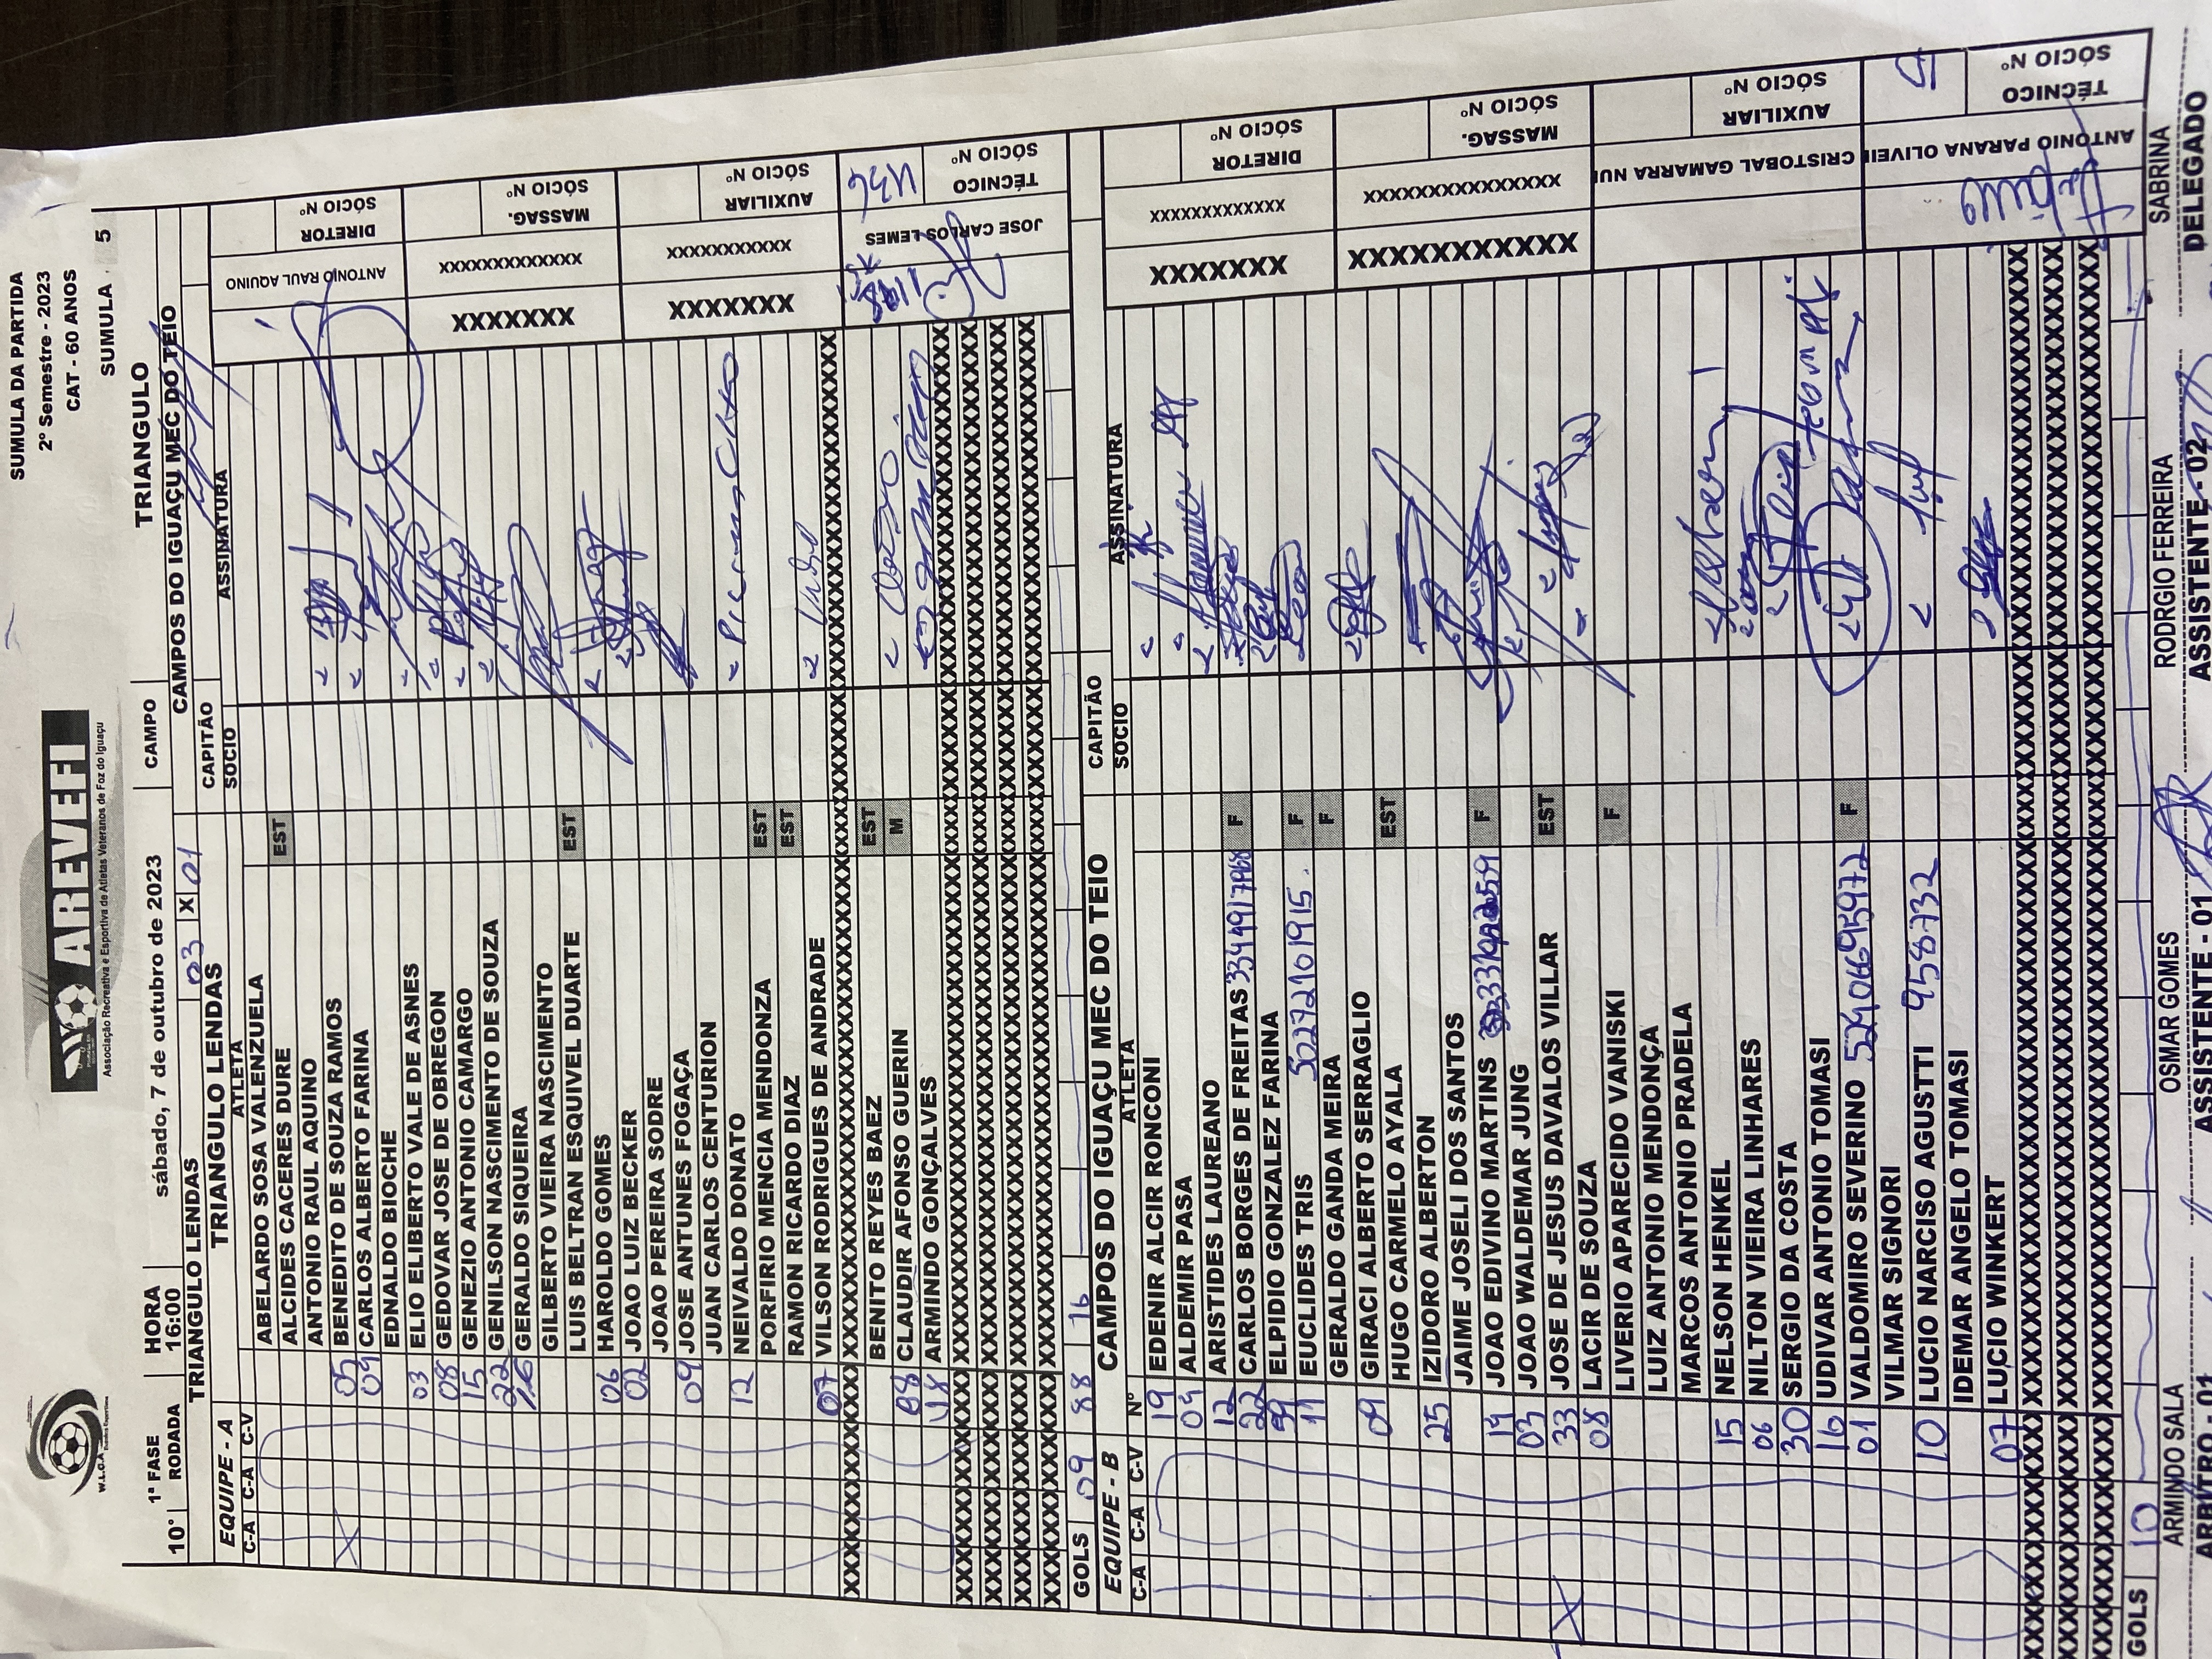 SUMULA DA PARTIDA
2º Semestre - 2023
CAT - 60 ANOS
SUMULA 5
W.L.O.A
AREVEFI
Associação Recreativa e Esportiva de Atletas Veteranos de Foz do Iguaçu
10° 1ª FASE RODADA HORA 16:00 sábado, 7 de outubro de 2023 CAMPO TRIANGULO
TRIANGULO LENDAS 03 X 01 CAMPOS DO IGUAÇU MEC DO TEIO
EQUIPE - A TRIANGULO LENDAS CAPITÃO
C-A C-A C-V ATLETA SOCIO ASSINATURA
ABELARDO SOSA VALENZUELA
ALCIDES CACERES DURE EST
ANTONIO RAUL AQUINO
05 BENEDITO DE SOUZA RAMOS
04 CARLOS ALBERTO FARINA
EDNALDO BIOCHE
03 ELIO ELIBERTO VALE DE ASNES
08 GEDOVAR JOSE DE OBREGON
15 GENEZIO ANTONIO CAMARGO
22 GENILSON NASCIMENTO DE SOUZA
16 GERALDO SIQUEIRA
GILBERTO VIEIRA NASCIMENTO
LUIS BELTRAN ESQUIVEL DUARTE EST
06 HAROLDO GOMES
02 JOAO LUIZ BECKER
JOAO PEREIRA SODRE
09 JOSE ANTUNES FOGAÇA
JUAN CARLOS CENTURION
12 NEIVALDO DONATO
PORFIRIO MENCIA MENDONZA EST
RAMON RICARDO DIAZ EST
07 VILSON RODRIGUES DE ANDRADE
BENITO REYES BAEZ EST
88 CLAUDIR AFONSO GUERIN M
18 ARMINDO GONÇALVES
GOLS 09 88 16
ANTONIO RAUL AQUINO DIRETOR SÓCIO Nº
XXXXXXX XXXXXXXXXXXXX MASSAG. SÓCIO Nº
XXXXXXX XXXXXXXXXXX AUXILIAR SÓCIO Nº
JOSE CARLOS LEMES TÉCNICO SÓCIO Nº
EQUIPE - B CAMPOS DO IGUAÇU MEC DO TEIO CAPITÃO
C-A C-A C-V Nº ATLETA SOCIO ASSINATURA
19 EDENIR ALCIR RONCONI
04 ALDEMIR PASA
12 ARISTIDES LAUREANO
22 CARLOS BORGES DE FREITAS F
99 ELPIDIO GONZALEZ FARINA
11 EUCLIDES TRIS 50272101915. F
GERALDO GANDA MEIRA F
09 GIRACI ALBERTO SERRAGLIO
HUGO CARMELO AYALA EST
25 IZIDORO ALBERTON
JAIME JOSELI DOS SANTOS
14 JOAO EDIVINO MARTINS F
03 JOAO WALDEMAR JUNG
33 JOSE DE JESUS DAVALOS VILLAR EST
08 LACIR DE SOUZA
LIVERIO APARECIDO VANISKI F
LUIZ ANTONIO MENDONÇA
MARCOS ANTONIO PRADELA
15 NELSON HENKEL
06 NILTON VIEIRA LINHARES
30 SERGIO DA COSTA
16 UDIVAR ANTONIO TOMASI
01 VALDOMIRO SEVERINO 52906695972 F
VILMAR SIGNORI
10 LUCIO NARCISO AGUSTTI 9458732
IDEMAR ANGELO TOMASI
07 LUCIO WINKERT
GOLS 10
XXXXXXX XXXXXXXXXXXXX DIRETOR SÓCIO Nº
XXXXXXXXXXX XXXXXXXXXXXXXXXX MASSAG. SÓCIO Nº
CRISTOBAL GAMARRA NU AUXILIAR SÓCIO Nº
ANTONIO PARANA OLIVEI TÉCNICO SÓCIO Nº
ARMINDO SALA OSMAR GOMES RODRGIO FERREIRA SABRINA
ARBITRO - 01 ASSISTENTE - 01 ASSISTENTE - 02 DELEGADO